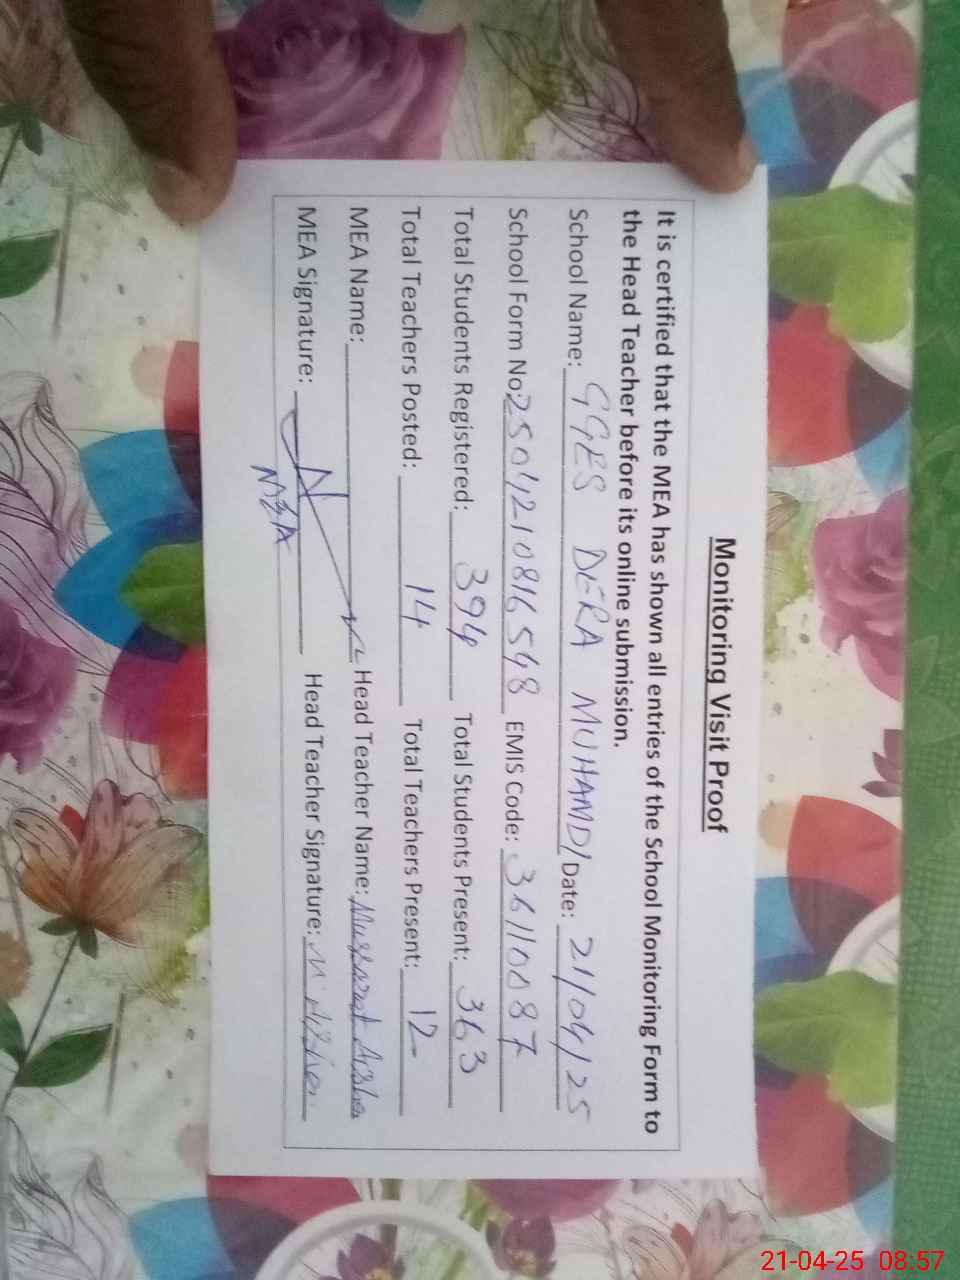 Monitoring Visit Proof
It is certified that the MEA has shown all entries of the School Monitoring Form to
the Head Teacher before its online submission.
School Name: GGES DERA MUHAMDI Date: 21/04/25
School Form No: 2504210816548 EMIS Code: 36110087
Total Students Registered: 394 Total Students Present: 363
Total Teachers Posted: 14 Total Teachers Present: 12
MEA Name: Head Teacher Name: Musarrat
MEA Signature: Head Teacher Signature:
21-04-25 08:57